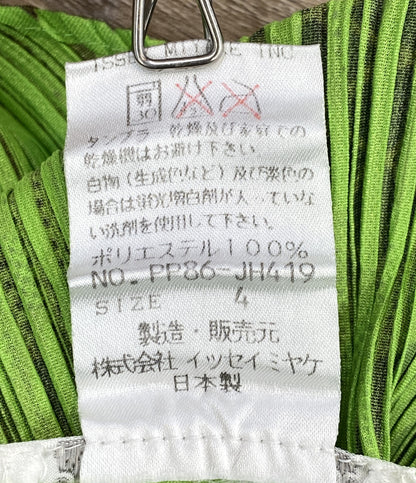 ISSEY MIYAKE INC.
弱 30
タンブラー乾燥及び家庭での
乾燥機はお避け下さい。
白物(生成色など)及び淡色の
場合は蛍光増白剤が入っていな
い洗剤を使用して下さい。
ポリエステル100%
NO. PP86-JH419
SIZE 4
製造・販売元
株式会社 イッセイ ミヤケ
日本製